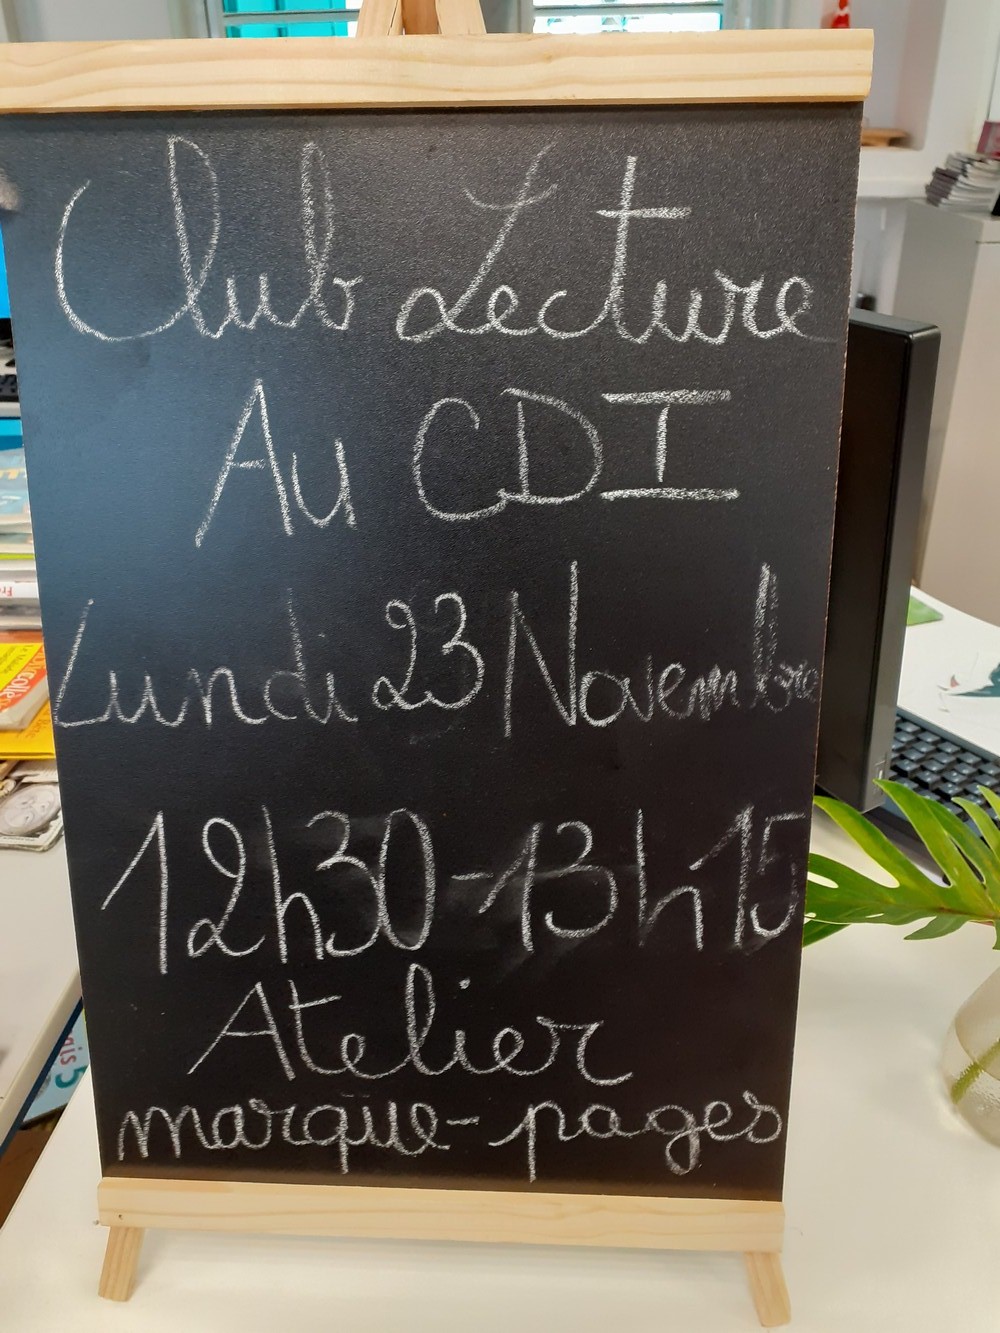 Club Lecture
Au CDI
Lundi 23 Novembre
12h30-13h15
Atelier
marque-pages